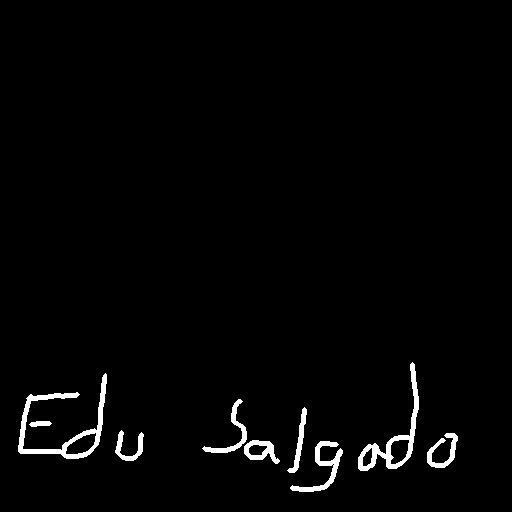 Edu Salgado